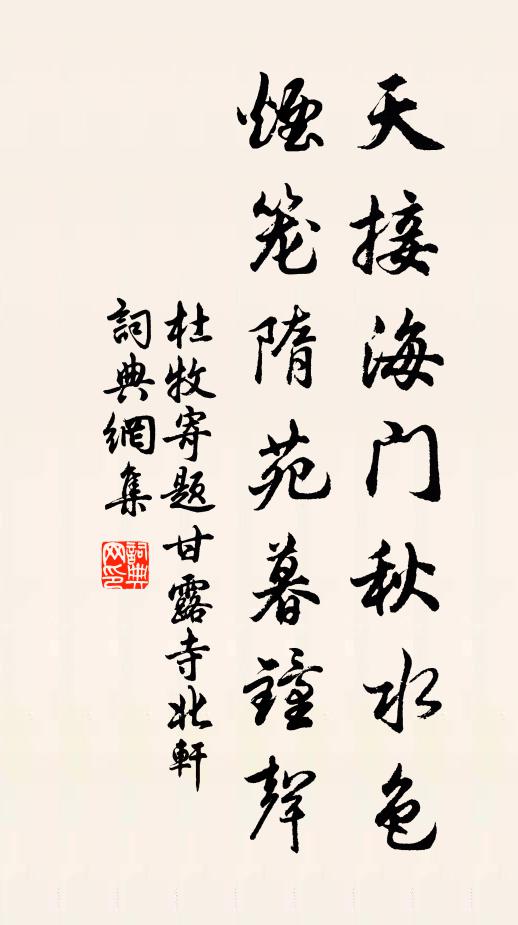 天接海门秋水色
煙笼隋苑暮鐘聲
杜牧寄题甘露寺北軒
詞典網集
詞典网印